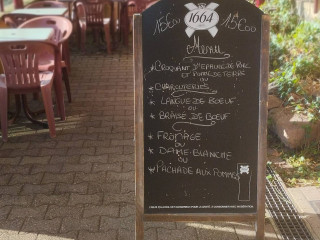 15€00 1664 15€00
Menu
* Croquant d'épaule de porc
et pomme de terre
ou
* Charcuteries
* Langue de boeuf
ou
* Braisé de boeuf
* Fromage
ou
* Dame-Blanche
ou
* Pachade aux pommes